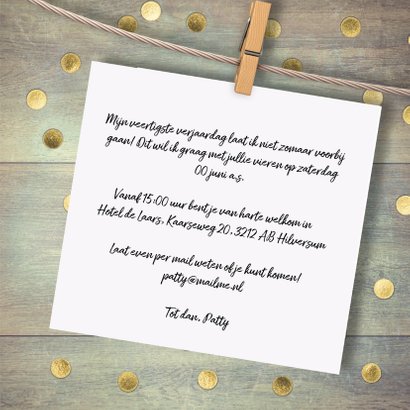 Mijn veertigste verjaardag laat ik niet zomaar voorbij
gaan! Dit wil ik graag met jullie vieren op zaterdag
00 juni a.s.
Vanaf 15:00 uur bent je van harte welkom in
Hotel de Laars, Kaarseweg 20, 3212 AB Hilversum
Laat even per mail weten of je kunt komen!
patty@mailme.nl
Tot dan, Patty